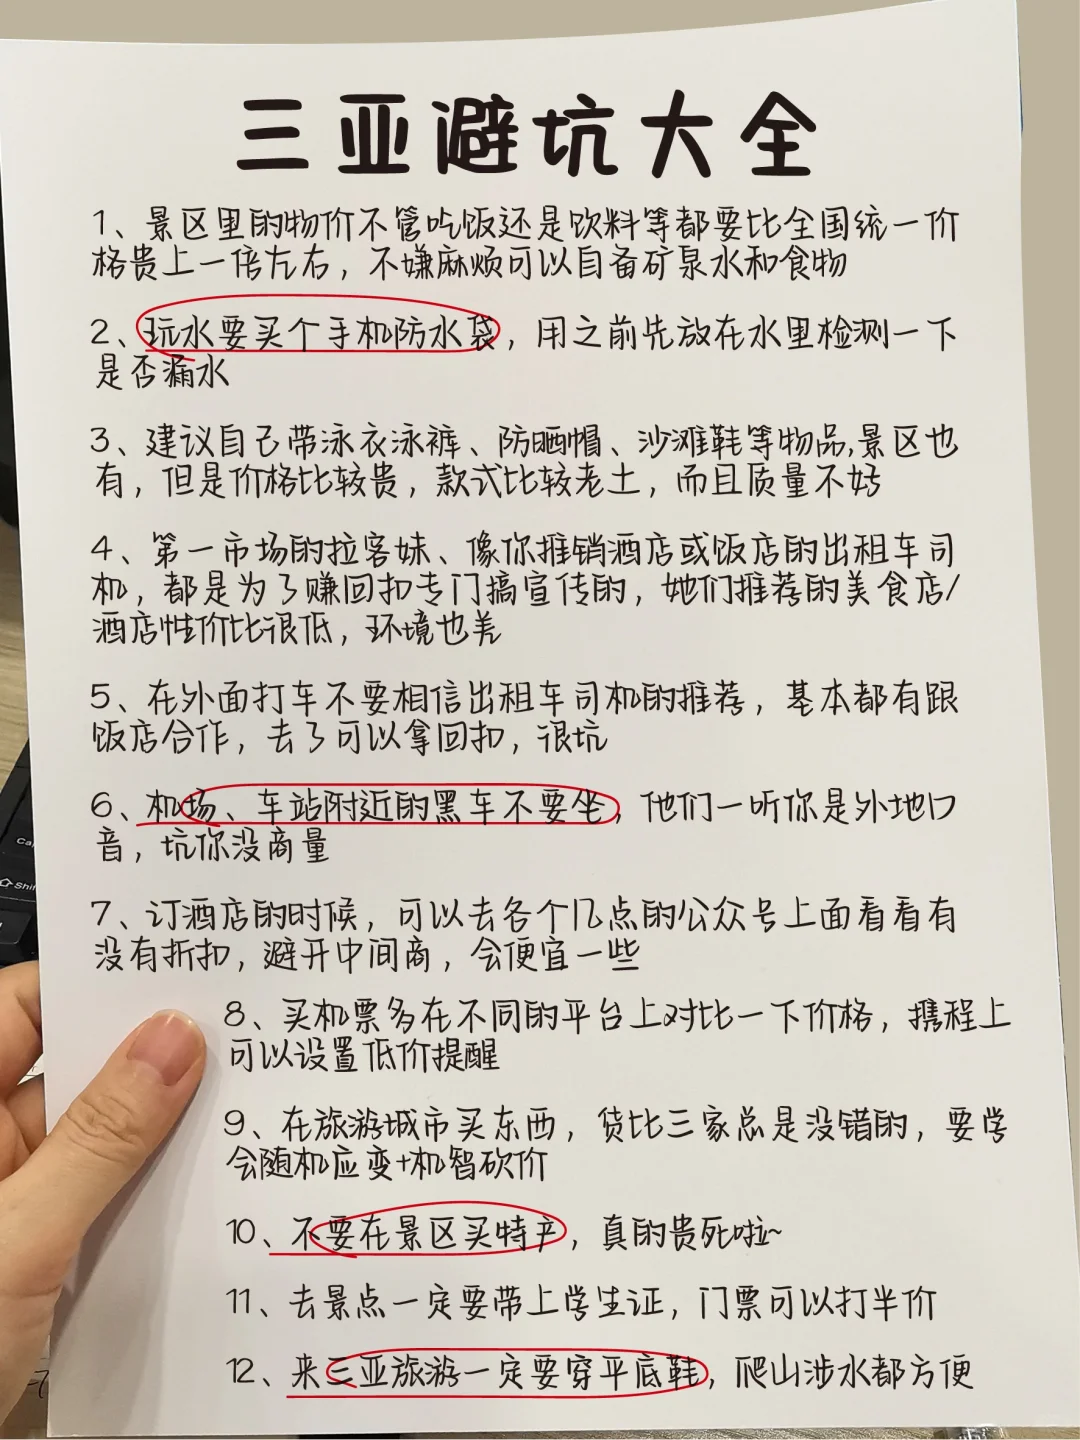 三亚避坑大全
1、景区里的物价不管吃饭还是饮料等都要比全国统一价
格贵上一倍左右，不嫌麻烦可以自备矿泉水和食物
2、玩水要买个手机防水袋，用之前先放在水里检测一下
是否漏水
3、建议自己带泳衣泳裤、防晒帽、沙滩鞋等物品,景区也
有，但是价格比较贵，款式比较老土，而且质量不好
4、第一市场的拉客妹、像你推销酒店或饭店的出租车司
机，都是为了赚回扣专门搞宣传的，她们推荐的美食店/
酒店性价比很低，环境也差
5、在外面打车不要相信出租车司机的推荐，基本都有跟
饭店合作，去了可以拿回扣，很坑
6、机场、车站附近的黑车不要坐，他们一听你是外地口
音，坑你没商量
7、订酒店的时候，可以去各个几点的公众号上面看看有
没有折扣，避开中间商，会便宜一些
8、买机票多在不同的平台上对比一下价格，携程上
可以设置低价提醒
9、在旅游城市买东西，货比三家总是没错的，要学
会随机应变+机智砍价
10、不要在景区买特产，真的贵死啦~
11、去景点一定要带上学生证，门票可以打半价
12、来三亚旅游一定要穿平底鞋，爬山涉水都方便